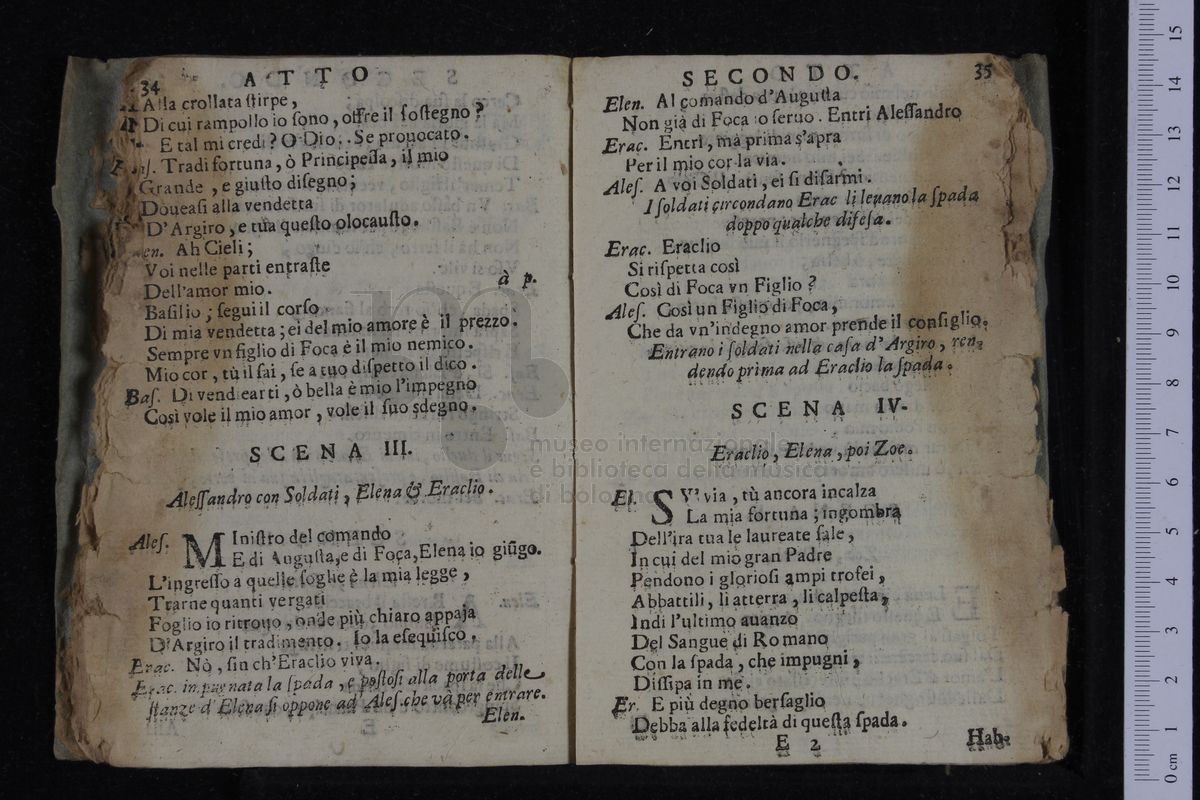 34 ATTO
Alla crollata ſtirpe,
Di cui rampollo io ſono, offre il ſoſtegno?
E tal mi credi? O Dio. Se prouocato.
Tradi fortuna, ò Principeſſa, il mio
Grande, e giuſto diſegno;
Doueaſi alla vendetta
D'Argiro, e tua queſto olocauſto.
Ah Cieli;
Voi nelle parti entraſte
Dell'amor mio. à p.
Baſilio; ſegui il corſo
Di mia vendetta; ei del mio amore è il prezzo.
Sempre vn figlio di Foca è il mio nemico.
Mio cor, tù il ſai, ſe a tuo diſpetto il dico.
Baſ. Di vendicarti, ò bella è mio l'impegno
Così vole il mio amor, vole il ſuo sdegno.
SCENA III.
Aleſſandro con Soldati, Elena & Eraclio.
Aleſ. MIniſtro del comando
E di Auguſta, e di Foca, Elena io giũgo.
L'ingreſſo a quelle ſoglie è la mia legge,
Trarne quanti vergati
Foglio io ritrouo, onde più chiaro appaja
D'Argiro il tradimento. Io la eſequiſco.
Erac. Nò, ſin ch'Eraclio viva.
Erac. impugnata la ſpada, e poſtoſi alla porta delle
ſtanze d'Elena ſi oppone ad Aleſ. che và per entrare.
Elen.
SECONDO. 35
Elen. Al comando d'Auguſta
Non già di Foca io ſeruo. Entri Aleſſandro
Erac. Entri, ma prima s'apra
Per il mio cor la via.
Aleſ. A voi Soldati, ei ſi diſarmi.
I ſoldati circondano Erac li leuano la ſpada
doppo qualche difeſa.
Erac. Eraclio
Si riſpetta così
Così di Foca vn Figlio?
Aleſ. Così un Figlio di Foca,
Che da vn'indegno amor prende il conſiglio.
Entrano i ſoldati nella caſa d'Argiro, ren-
dendo prima ad Eraclio la ſpada.
SCENA IV.
Eraclio, Elena, poi Zoe.
El. SV' via, tù ancora incalza
La mia fortuna; ingombra
Dell'ira tua le laureate ſale,
In cui del mio gran Padre
Pendono i glorioſi ampi trofei,
Abbattili, li atterra, li calpeſta,
Indi l'ultimo auanzo
Del Sangue di Romano
Con la ſpada, che impugni,
Diſſipa in me.
Er. E più degno berſaglio
Debba alla fedeltà di queſta ſpada.
E 2 Hab-
museo internazionale
e biblioteca della musica
di bologna